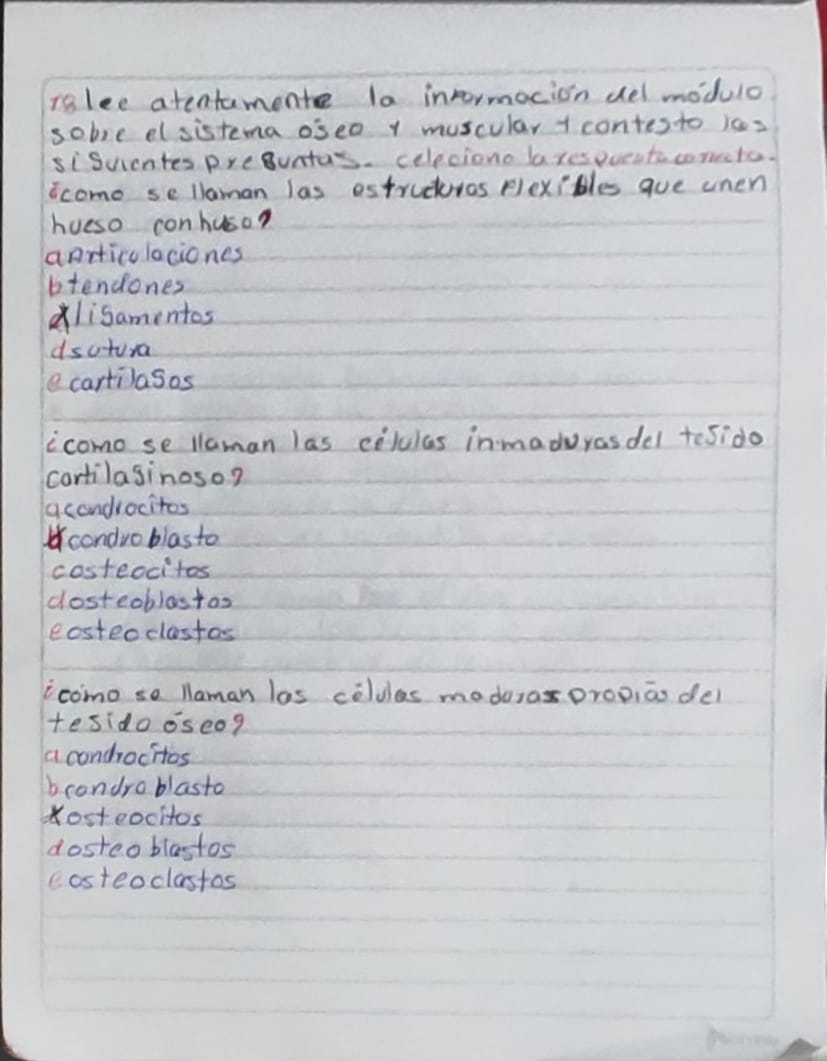 rg lee atentamente la informacion del módulo
sobre el sistema oseo y muscular y contesto las
siguientes preguntas. celeciono la respuesta correcta.
¿como se llaman las estructuras flexibles que unen
hueso con huso?
a articulaciones
b tendones
x ligamentos
d sutura
e cartilagos
¿como se llaman las células inmaduras del tegido
cartilaginoso?
a condrocitos
x condroblasto
c osteocitos
d osteoblastos
e osteoclastos
¿como se llaman las células maduras propias del
tegido óseo?
a condrocitos
b condroblasto
x osteocitos
d osteoblastos
e osteoclastos